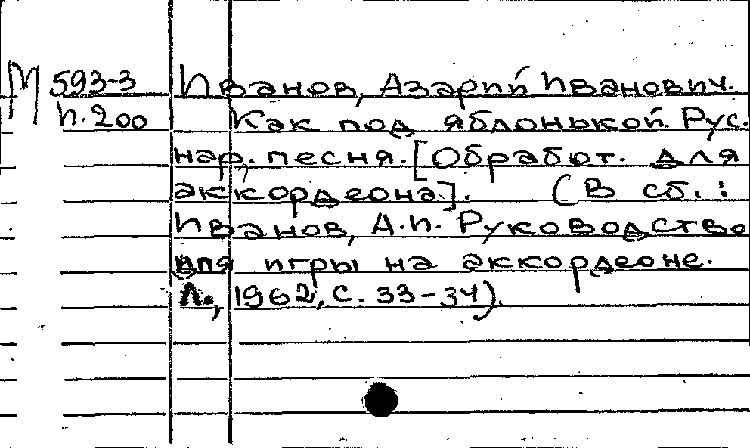 М 593-3 Иванов, Азарий Иванович.
И.200 Как под яблонькой. Рус.
нар. песня. [Обработ. для
аккордеона]. (В сб.:
Иванов, А.И. Руководство
для игры на аккордеоне.
Л., 1962, с. 33-34).